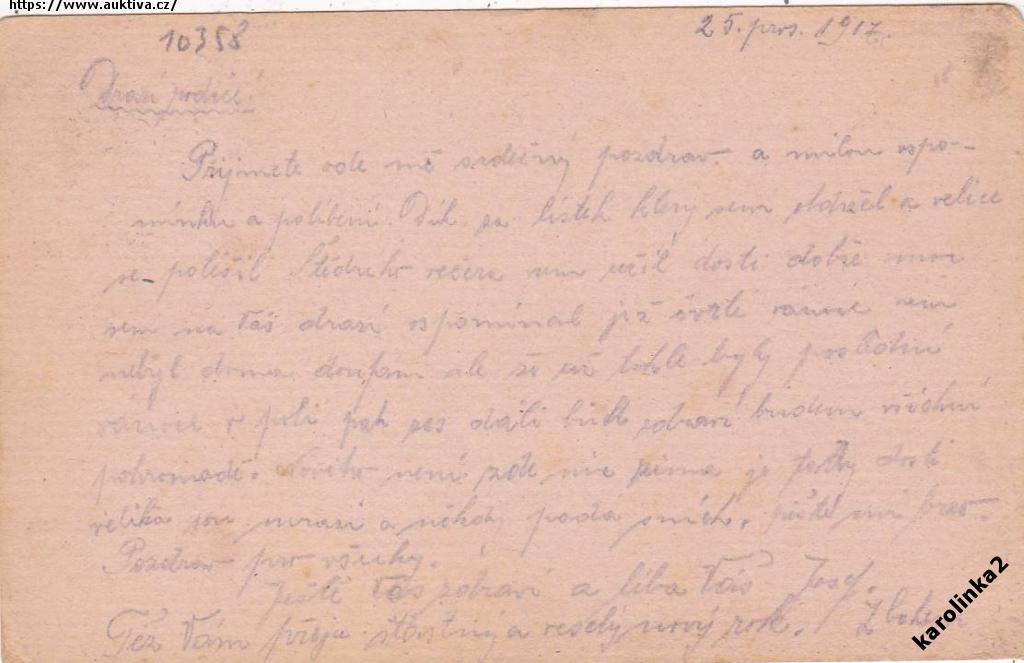 https://www.auktiva.cz/
10358
25. pros. 1917.
Drazí rodiče!
Přijmete ode mě srdečný pozdrav a milou vspo-
mínku a políbení. Dík za lístek který sem obdržel a velice
se potěšil Štědrého večera sem užil dosti dobře
sem na Vás drazí vspomínal již čvrté vánoce sem
nebyl doma doufám ale že už tohle byly poslední
vánoce v poli pak dá-li Bůh zdraví budem všichni
pohromadě. Nového není zde nic zima je dosti
veliká mrazí a někdy padá sních. pište mi brzo.
Pozdrav pro všecky.
Ještě Vás zdraví a líbá Váš Josef.
Též Vám přeju šťastný a veselý nový rok. Z bohem
karolinka2